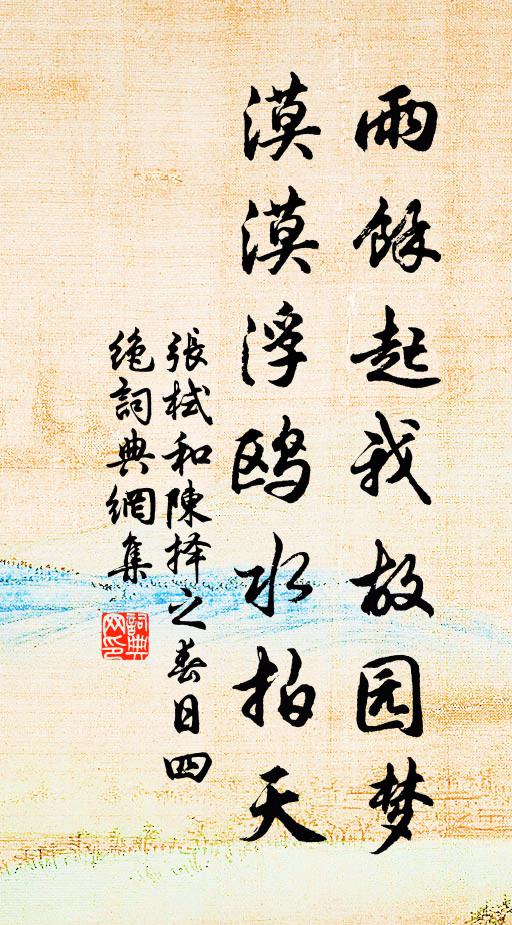 雨餘起我故园梦
漠漠浮鸥水拍天
張栻和陳择之春日四
绝詞典網集
詞典网印